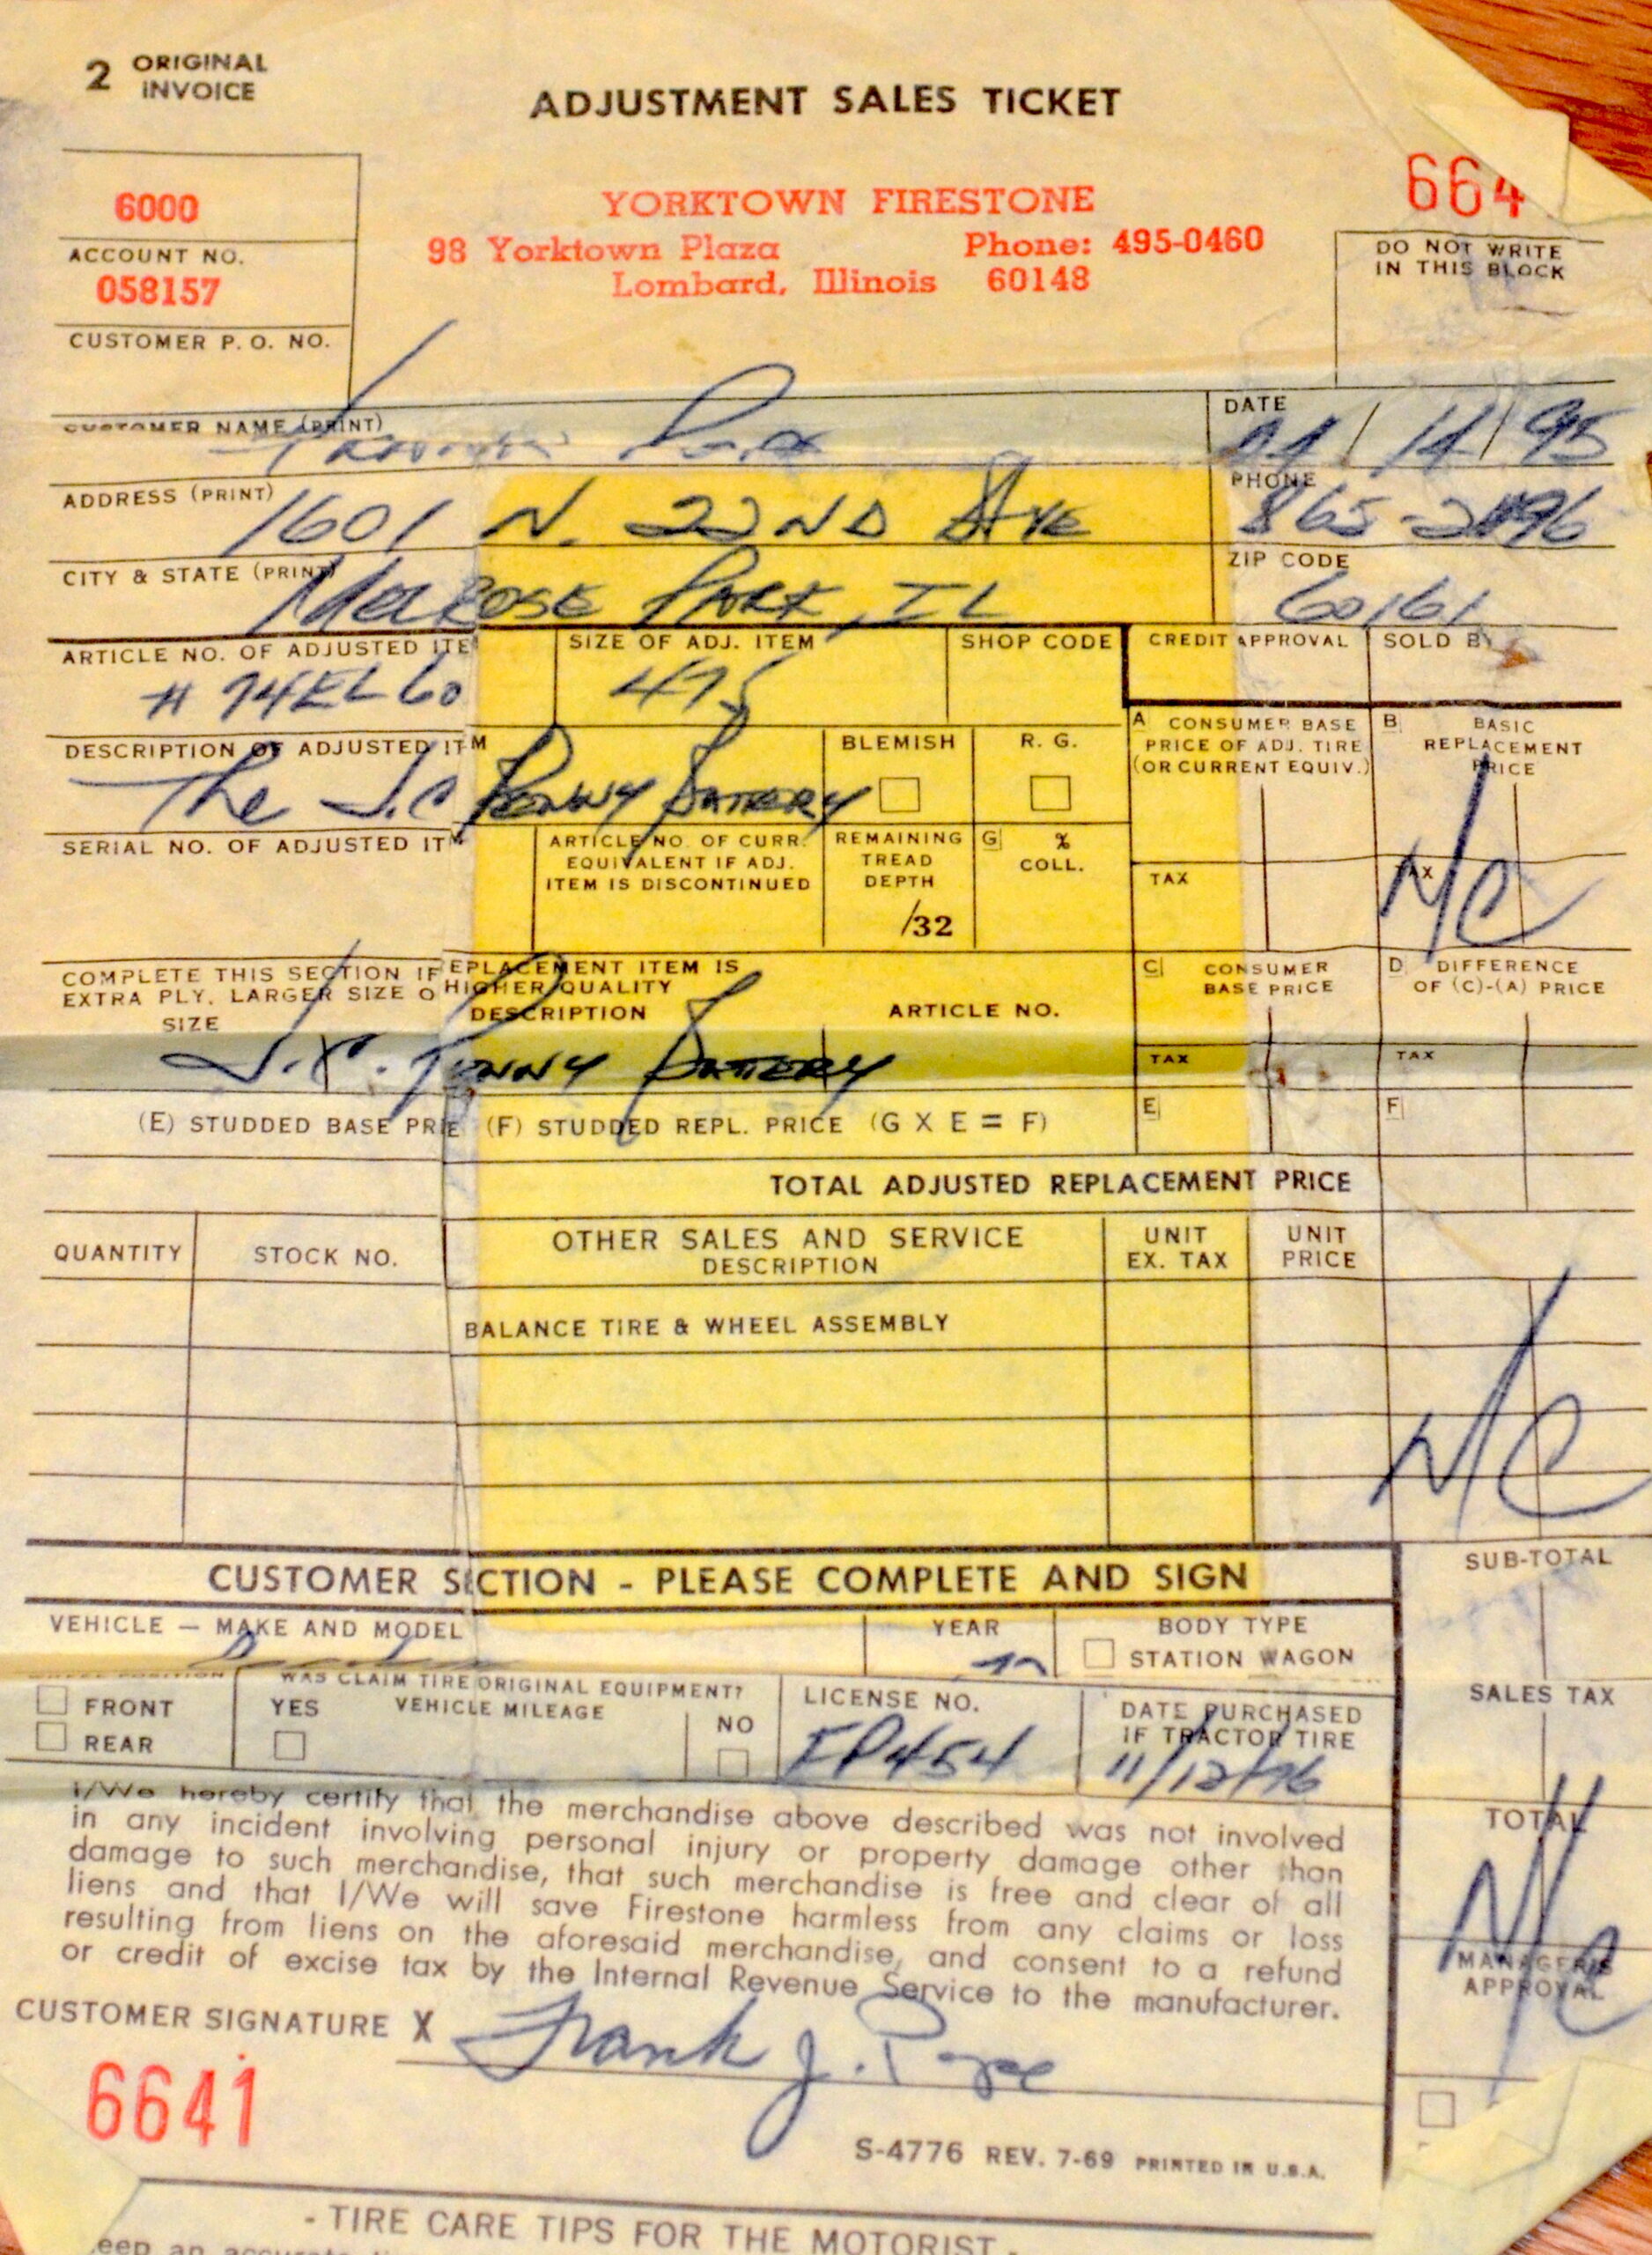 2 ORIGINAL INVOICE
ADJUSTMENT SALES TICKET
6000
ACCOUNT NO.
058157
CUSTOMER P. O. NO.
YORKTOWN FIRESTONE
98 Yorktown Plaza Phone: 495-0460
Lombard, Illinois 60148
664
DO NOT WRITE
IN THIS BLOCK
CUSTOMER NAME (PRINT)
DATE
/ 14 / 95
ADDRESS (PRINT) 1601 N. 22ND AVE
PHONE
865-
CITY & STATE (PRINT) Melrose PARK, IL
ZIP CODE
60161
ARTICLE NO. OF ADJUSTED ITE
# 74EL60
SIZE OF ADJ. ITEM
475
SHOP CODE
CREDIT APPROVAL
SOLD BY
DESCRIPTION OF ADJUSTED ITM
The J.C PENNY BATTERY
BLEMISH
R. G.
A CONSUMER BASE
PRICE OF ADJ. TIRE
(OR CURRENT EQUIV.)
B BASIC
REPLACEMENT
PRICE
SERIAL NO. OF ADJUSTED ITM
ARTICLE NO. OF CURR.
EQUIVALENT IF ADJ.
ITEM IS DISCONTINUED
REMAINING
TREAD
DEPTH
/32
G %
COLL.
TAX
TAX
N/C
COMPLETE THIS SECTION IF EPLACEMENT ITEM IS
EXTRA PLY, LARGER SIZE O HIGHER QUALITY
SIZE DESCRIPTION ARTICLE NO.
J.C. PENNY BATTERY
C CONSUMER
BASE PRICE
D DIFFERENCE
OF (C)-(A) PRICE
TAX
TAX
(E) STUDDED BASE PRIE (F) STUDDED REPL. PRICE (G X E = F)
E
F
TOTAL ADJUSTED REPLACEMENT PRICE
QUANTITY
STOCK NO.
OTHER SALES AND SERVICE
DESCRIPTION
UNIT
EX. TAX
UNIT
PRICE
BALANCE TIRE & WHEEL ASSEMBLY
N/C
CUSTOMER SECTION - PLEASE COMPLETE AND SIGN
SUB-TOTAL
VEHICLE — MAKE AND MODEL
YEAR
BODY TYPE
STATION WAGON
SALES TAX
FRONT
REAR
WAS CLAIM TIRE ORIGINAL EQUIPMENT?
YES VEHICLE MILEAGE NO
LICENSE NO.
FP454
DATE PURCHASED
IF TRACTOR TIRE
11/12/76
TOTAL
N/C
I/We hereby certify that the merchandise above described was not involved
in any incident involving personal injury or property damage other than
damage to such merchandise, that such merchandise is free and clear of all
liens and that I/We will save Firestone harmless from any claims or loss
resulting from liens on the aforesaid merchandise, and consent to a refund
or credit of excise tax by the Internal Revenue Service to the manufacturer.
MANAGER'S
APPROVAL
CUSTOMER SIGNATURE X Frank J. Pope
6641
S-4776 REV. 7-69 PRINTED IN U.S.A.
- TIRE CARE TIPS FOR THE MOTORIST -
eep an accurate